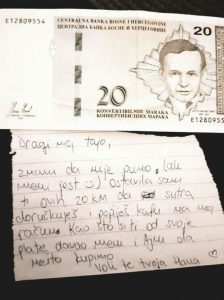 E12809554
CENTRALNA BANKA BOSNE I HERCEGOVINE
ЦЕНТРАЛНА БАНКА БОСНЕ И ХЕРЦЕГОВИНЕ
20
20
KONVERTIBILNIH MARAKA
КОНВЕРТИБИЛНИХ МАРАКА
E12809554
Dragi moj tajo,
znam da nije puno, ali
meni jest :) Ostavila sam
ti ovih 20 KM da sutra
doručkuješ i popiješ kafu na moj
račun. Kao što si ti od svoje
plate davao meni i Ajni da
nešto kupimo
Voli te tvoja Hana ♡